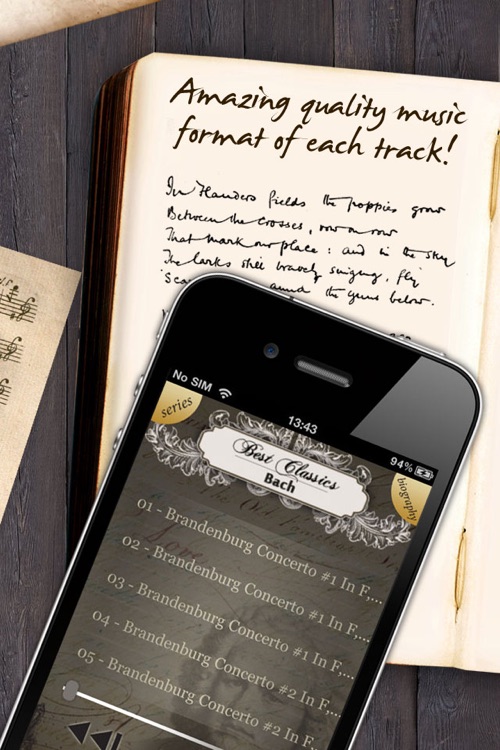 Amazing quality music
format of each track!
In Flanders fields the poppies grow
Between the Crosses, row on row
That mark our place : and in the sky
The larks still bravely singing, fly
Sca amid the guns below.
No SIM
13:43
94%
series
biography
Best Classics
Bach
01 - Brandenburg Concerto #1 In F,...
02 - Brandenburg Concerto #1 In F,...
03 - Brandenburg Concerto #1 In F,...
04 - Brandenburg Concerto #2 In F,...
05 - Brandenburg Concerto #2 In F,...